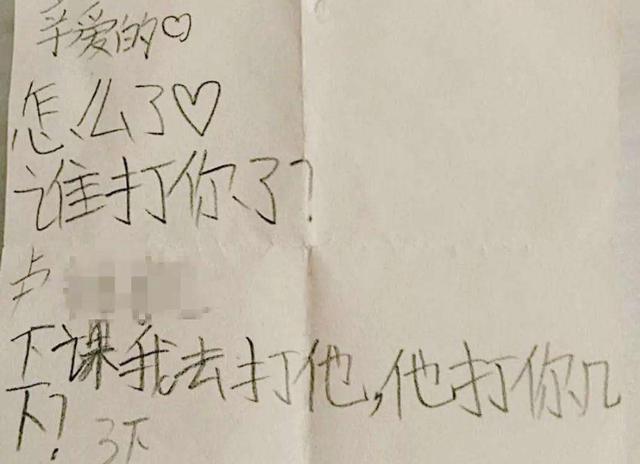 亲爱的♡
怎么了♡
谁打你了?
卢
下课我去打他,他打你几
下?
3下